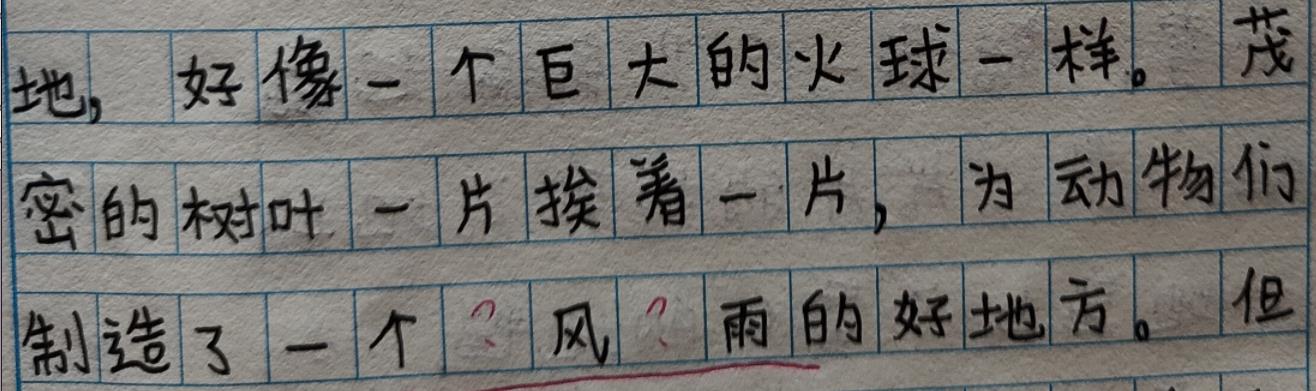 地，好像一个巨大的火球一样。茂
密的树叶一片挨着一片，为动物们
制造了一个？风？雨的好地方。但